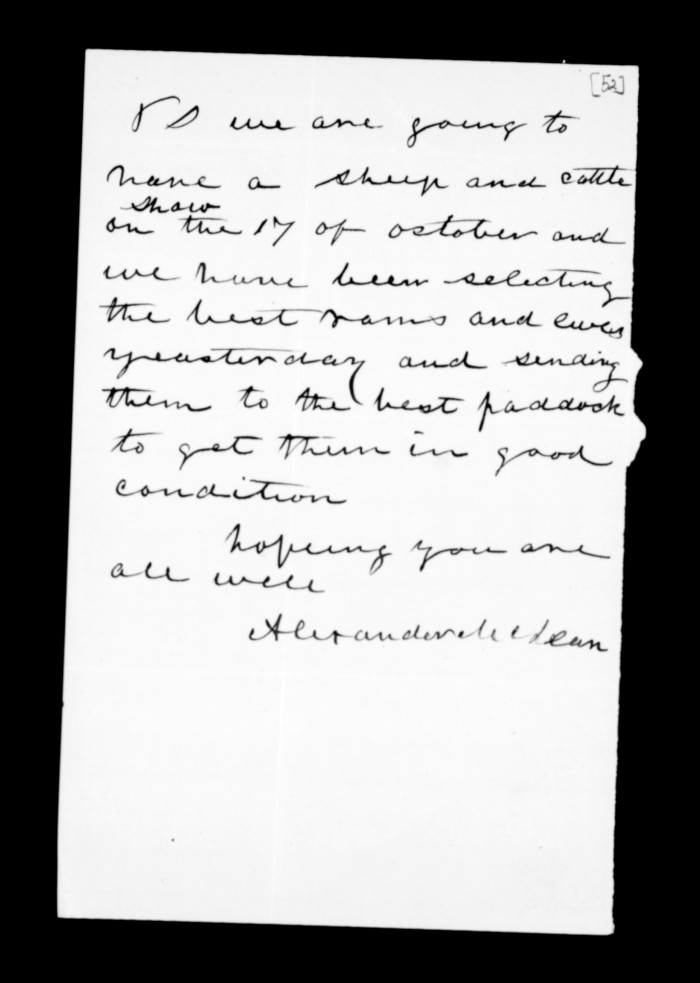 [52]
PS we are going to
have a sheep and cattle
show
on the 17 of october and
we have been selecting
the best rams and ewes
yeasterday and sending
them to the best paddock
to get them in good
condition
hopeing you are
all well
Alexander McLean